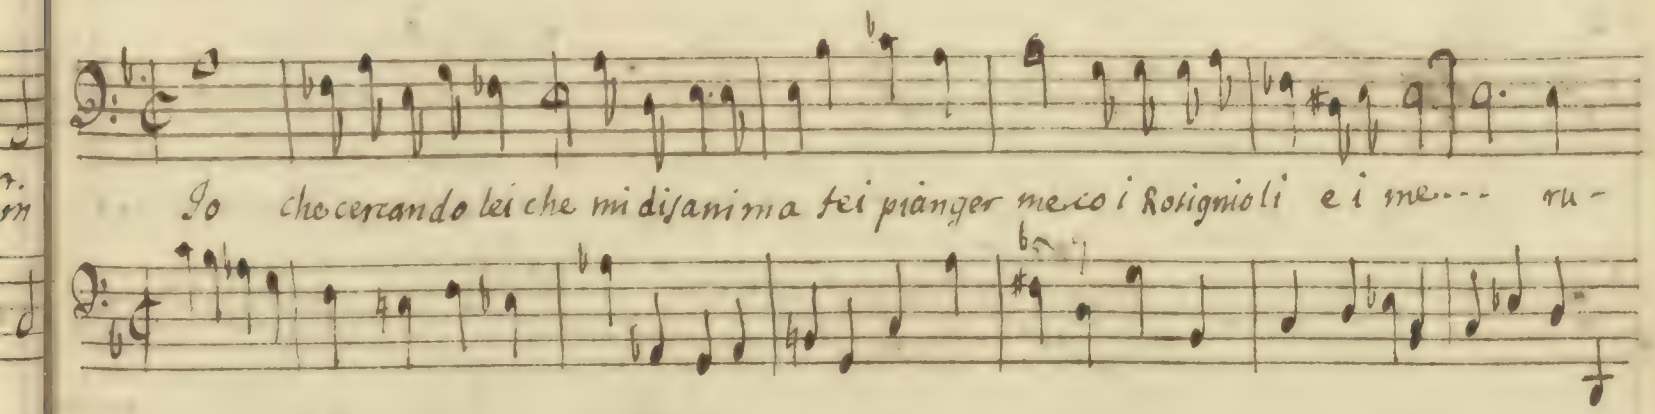 Io che cercando lei che mi disanima fei pianger meco i Rosignioli e i me.... ru-